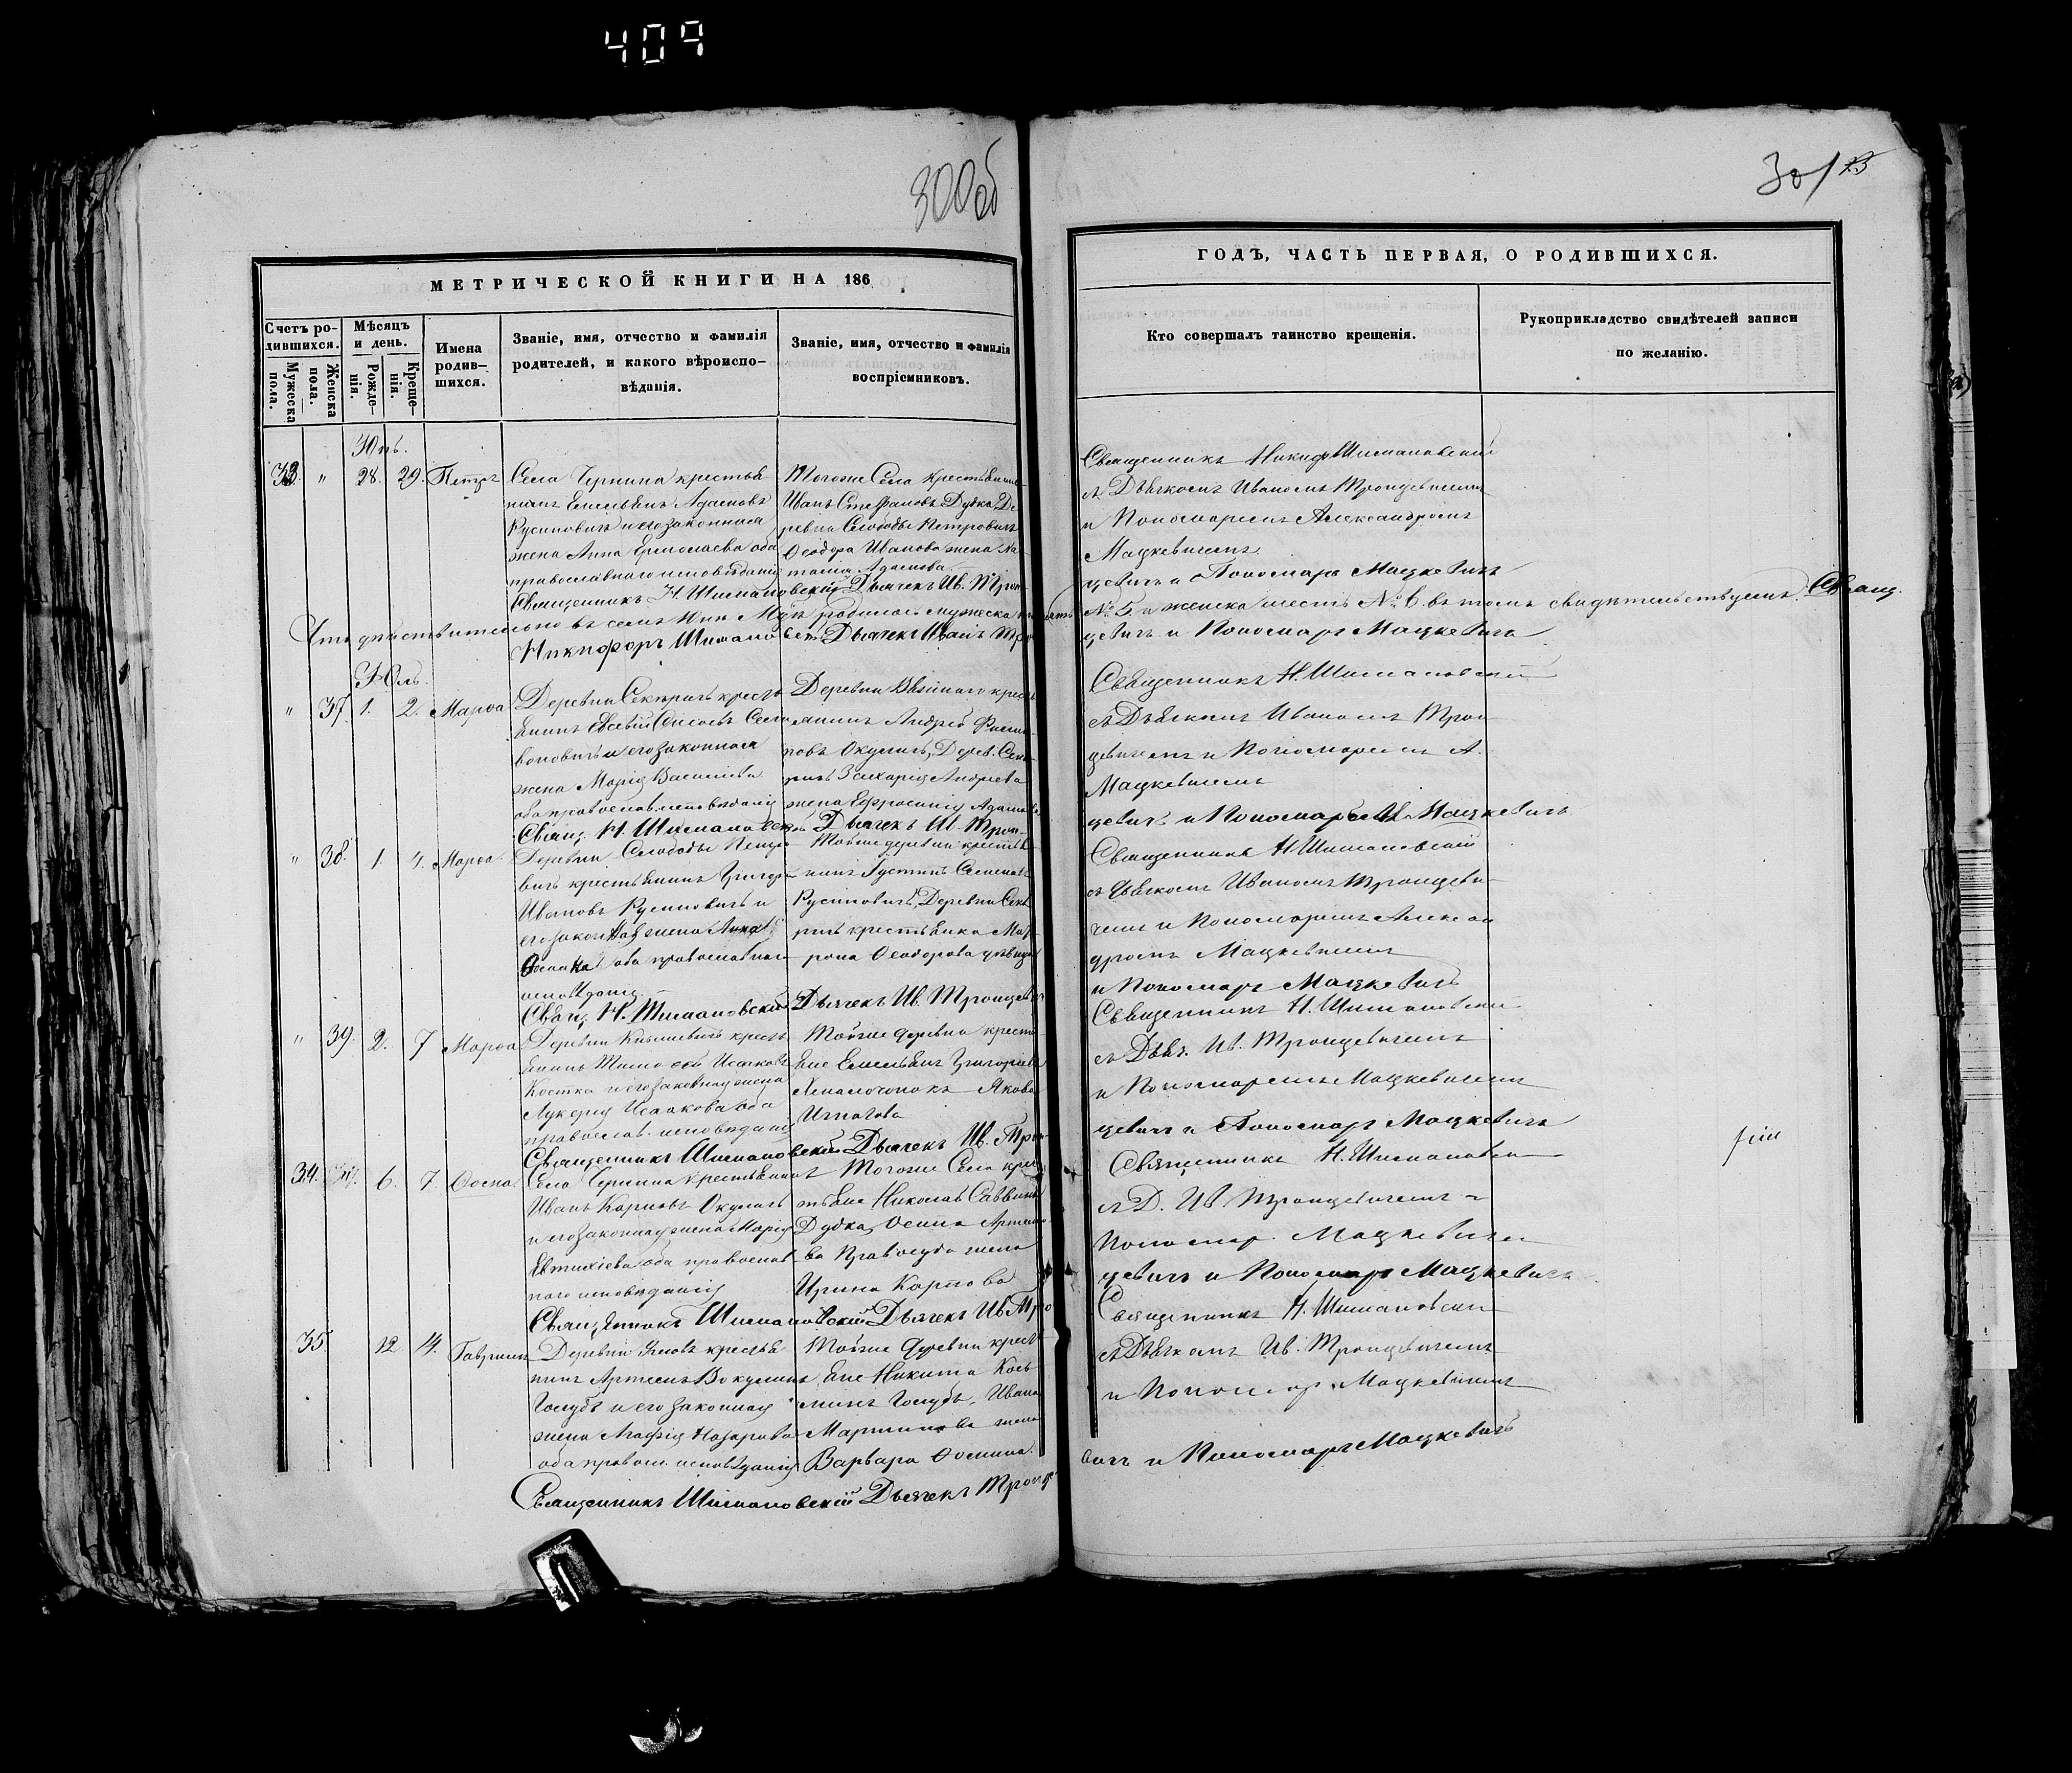 409
300об
301
МЕТРИЧЕСКОЙ КНИГИ НА 186
ГОДЪ, ЧАСТЬ ПЕРВАЯ, О РОДИВШИХСЯ.
Счетъ ро-
дившихся.
Мужеска
пола.
Женска
пола.
Мѣсяцъ
и день.
Рожде-
нія.
Креще-
нія.
Имена
родив-
шихся.
Званіе, имя, отчество и фамилія
родителей, и какого вѣроиспо-
вѣданія.
Званіе, имя, отчество и фамилія
воспріемниковъ.
Кто совершалъ таинство крещенія.
Рукоприкладство свидѣтелей записи
по желанію.
Юнь.
33. " 28. 29. Петръ
Села Чернина крестья
нинъ Емельянъ Адамовъ
Русиновичъ и его законная
жена Анна Ермолаева оба
православнаго исповѣданія
Тогоже Села крестьянинъ
Иванъ Стефановъ Дудка, Де
ревни Слободы Петровичъ
Ѳеодора Иванова жена На
талія Адамова
Священникъ Никиф Шимановскій
съ Дьячкомъ Иваномъ Троицевичемъ
и Пономаремъ Александромъ
Мацкевичемъ
Священникъ Н. Шимановскій Дьячекъ Ив. Трои
цевичъ и Пономарь Мацкевичъ
Что дѣйствительно въ семъ Юнѣ М родилось мужеска
№ 5 и женска шесть № 6. въ томъ свидѣтельствуемъ. Свящ.
Никифоръ Шимановскій Дьячекъ Иванъ Трои
цевичъ и Пономарь Мацкевичъ
Юль.
" 37. 1. 2. Марѳа
Деревни Секиричъ кресть
янинъ Евсевій Сысоевъ
и его законная
жена Марія Васильева
оба православ. исповѣданія
Деревни крест
янинъ Андрей
новъ Окуличъ, Дерев. Секи
ричъ Захарія Андреева
жена Ефросинія Адамова
Священникъ Н. Шимановскій
съ Дьячкомъ Иваномъ Трои
цевичемъ и Пономаремъ А.
Мацкевичемъ
Свящ. Н. Шимановскій Дьячекъ Ив. Трои-
цевичъ и Пономарь Мацкевичъ
" 38. 1. 4. Марѳа
Деревни Слободы Петро
вичъ крестьянинъ Григорій
Ивановъ Русиновичъ и
его законная жена Анна
оба православнаго
исповѣданія
Тойже деревни крестья
нинъ Густинъ Семеновъ
Русиновичъ, Деревни Секи
ричъ крестьянка Мат
рона Ѳеодорова дѣвица
Священникъ Н. Шимановскій
съ Дьячкомъ Иваномъ Троицеви
чемъ и Пономаремъ Алексан
дромъ Мацкевичемъ
Свящ. Н. Шимановскій Дьячекъ Ив. Троицевичъ
и Пономарь Мацкевичъ
" 39. 2. 7 Марѳа
Деревни кресть
янинъ Тимоѳей Исаковъ
Костка и его законная жена
Лукерія Исаакова оба
православ. исповѣданія
Тойже деревни кресть
яне Емельянъ Григорьевъ
Якова
Игнатова
Священникъ Н. Шимановскій
съ Дьяч. Ив. Троицевичемъ
и Пономаремъ Мацкевичемъ
Священникъ Шимановскій Дьячекъ Ив. Трои
цевичъ и Пономарь Мацкевичъ
34. 6. 7. Ѳома
Села Чернина крестьянинъ
Иванъ Карповъ Окуличъ
и его законная жена Марія
Евтихіева оба православ
наго исповѣданія
Тогоже Села крес
тьяне Николай Саввинъ
Дудка, Осипа Артемо
ва жена
Ирина Карпова
Священникъ Н. Шимановскій
съ Д. Ив. Троицевичемъ и
Пономар. Мацкевичемъ
Священникъ Шимановскій Дьячекъ Ив Тро
цевичъ и Пономарь Мацкевичъ
35. 12 14. Гавріилъ
Деревни кресть
нинъ Артемъ Вокулинъ
Голубъ и его законная
жена Агафія Назарова
оба правосл. исповѣданія
Тойже Деревни кресть
яне Никита Кось
минъ Голубъ, Ивана
Мартинова жена
Варвара Ѳомина.
Священникъ Н. Шимановскій
съ Дьячкомъ Ив. Троицевичемъ
и Пономар. Мацкевичемъ
Священникъ Шимановскій Дьячекъ Троице
вичъ и Пономарь Мацкевичъ